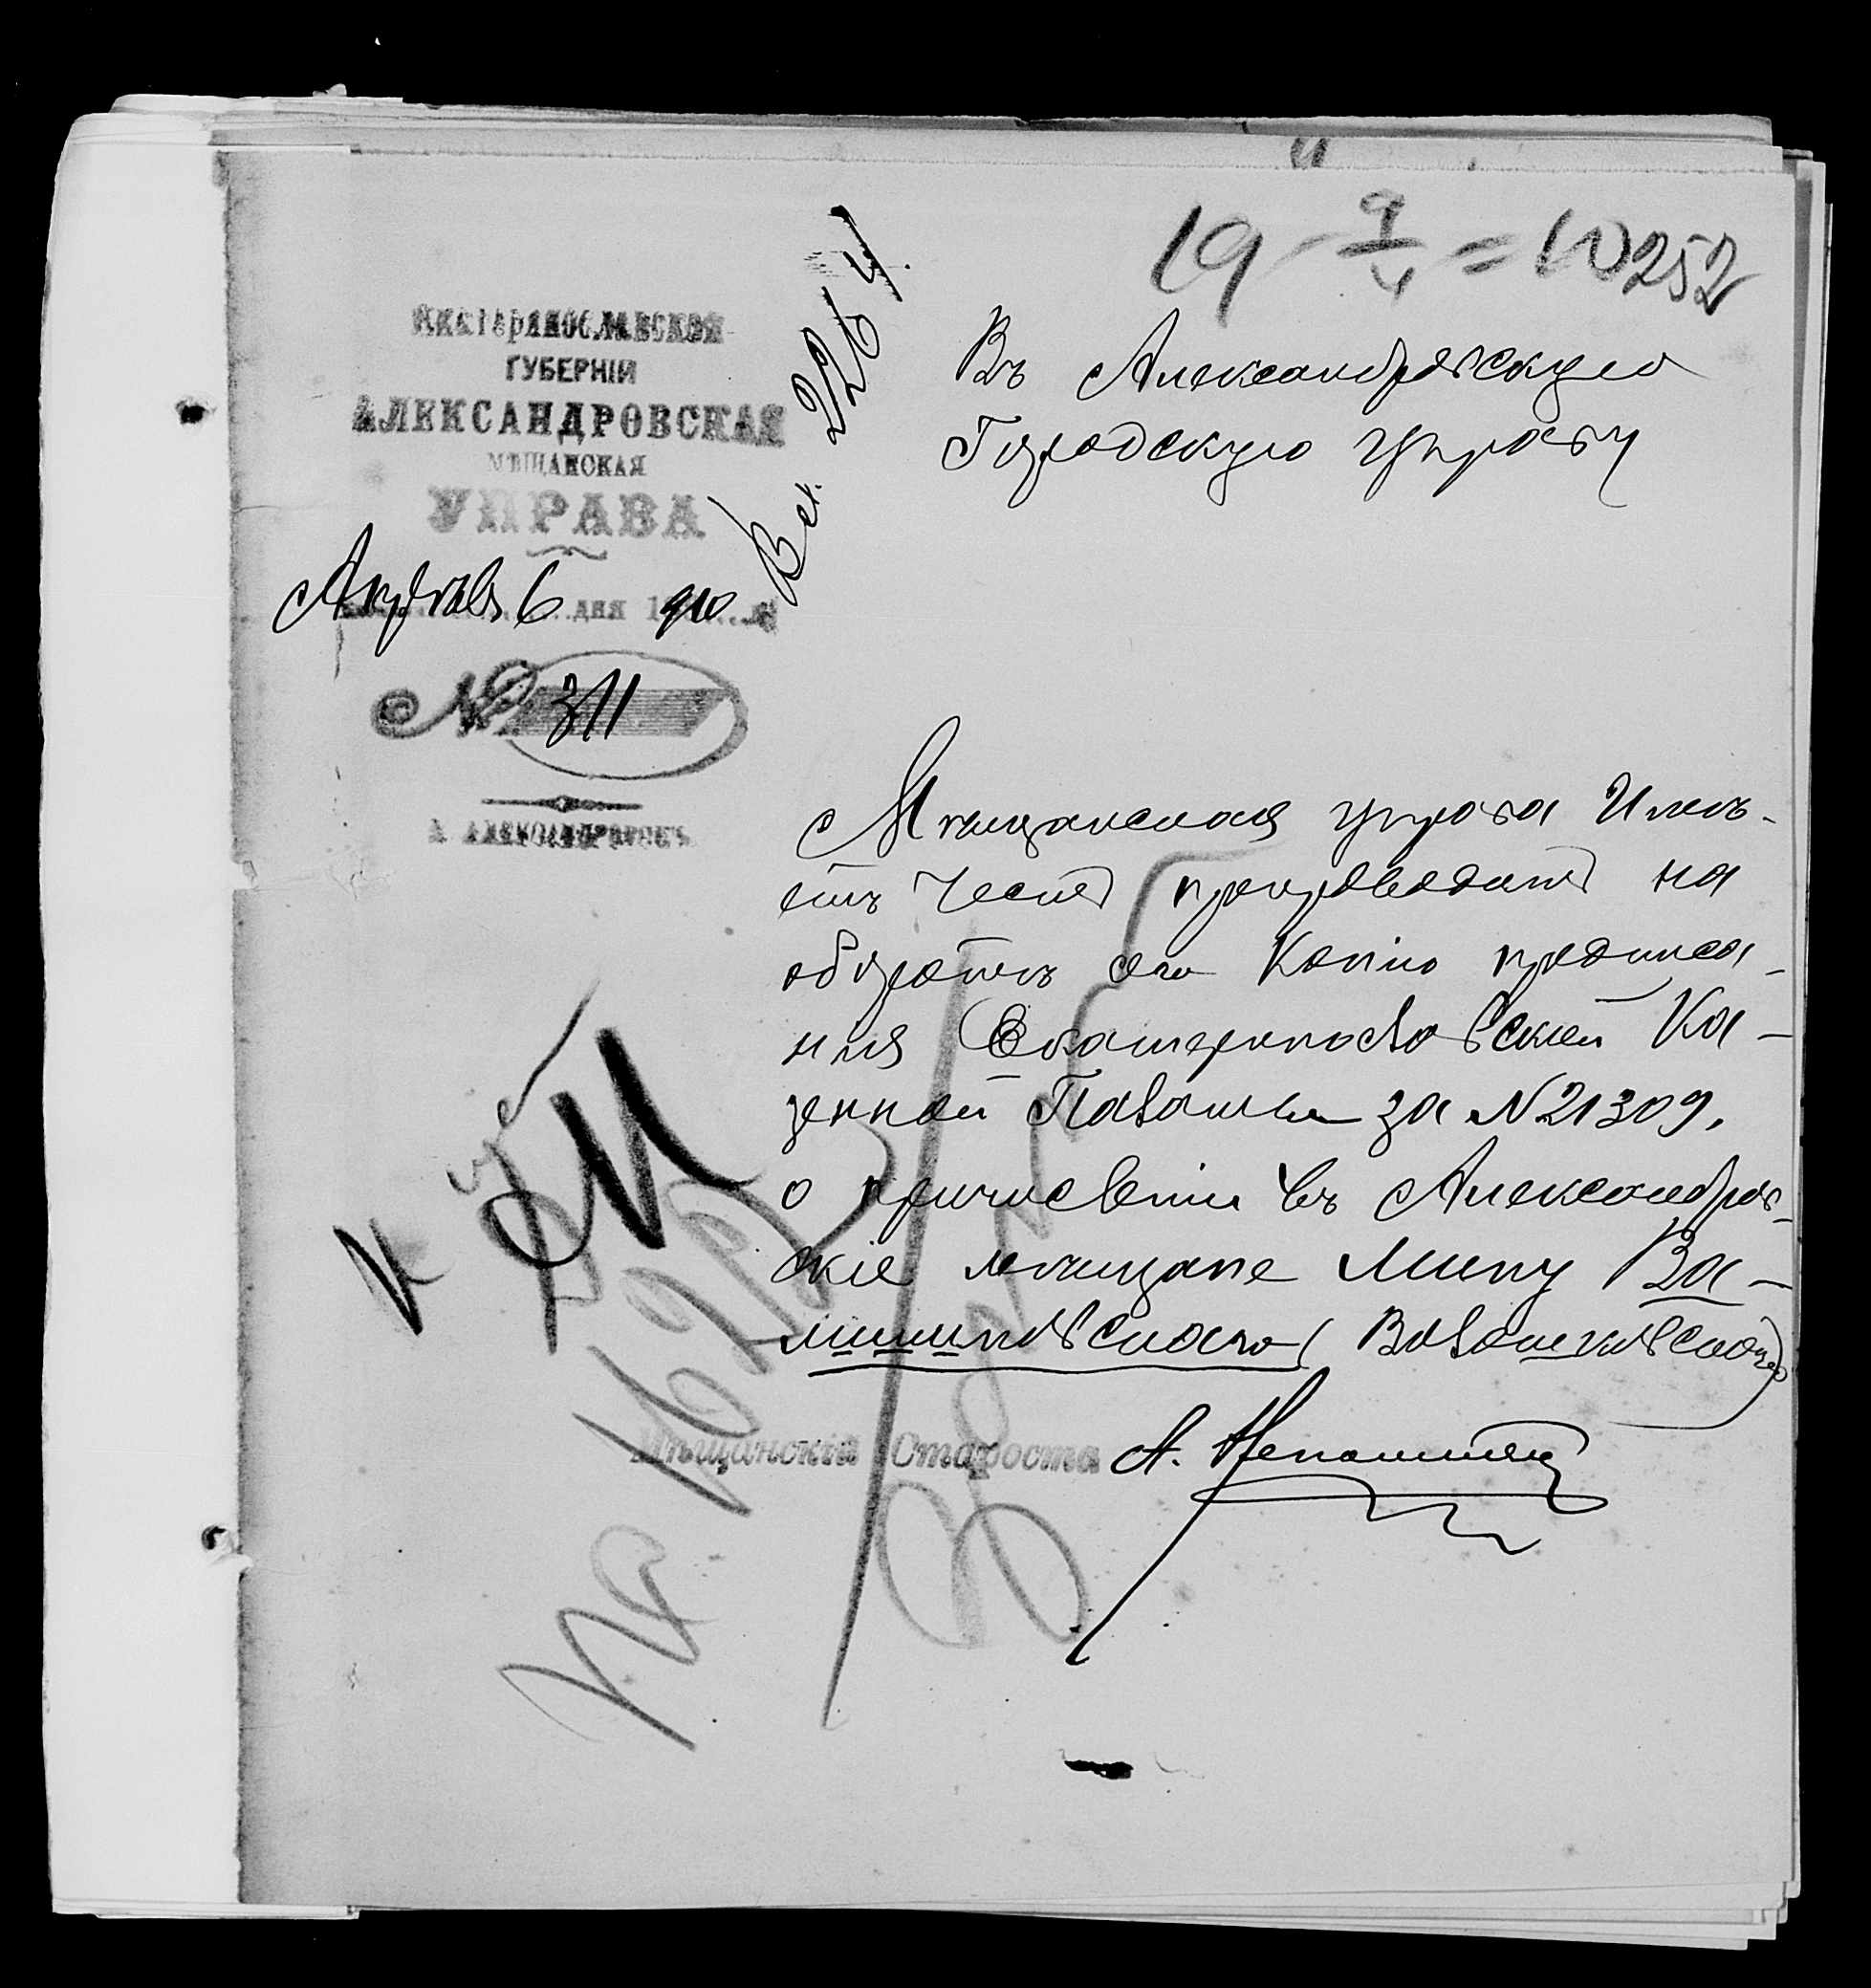 19 9/4 = 10
252
Екатеринославской
ГУБЕРНІИ
АЛЕКСАНДРОВСКАЯ
МѢЩАНСКАЯ
УПРАВА
Апрѣля 6 дня 1910 г.
№ 311
Г. АЛЕКСАНДРОВСКЪ
Вх. 2264
Въ Александровскую
Городскую управу
Мѣщанская управа Имѣ-
етъ Честь препроводить на
оборотѣ сего Копію предписа-
нія Екатеринославской Ка-
зенной Палаты за № 21309,
о причисленіи въ Александров-
скіе мѣщане
Мѣщанскій Староста А.